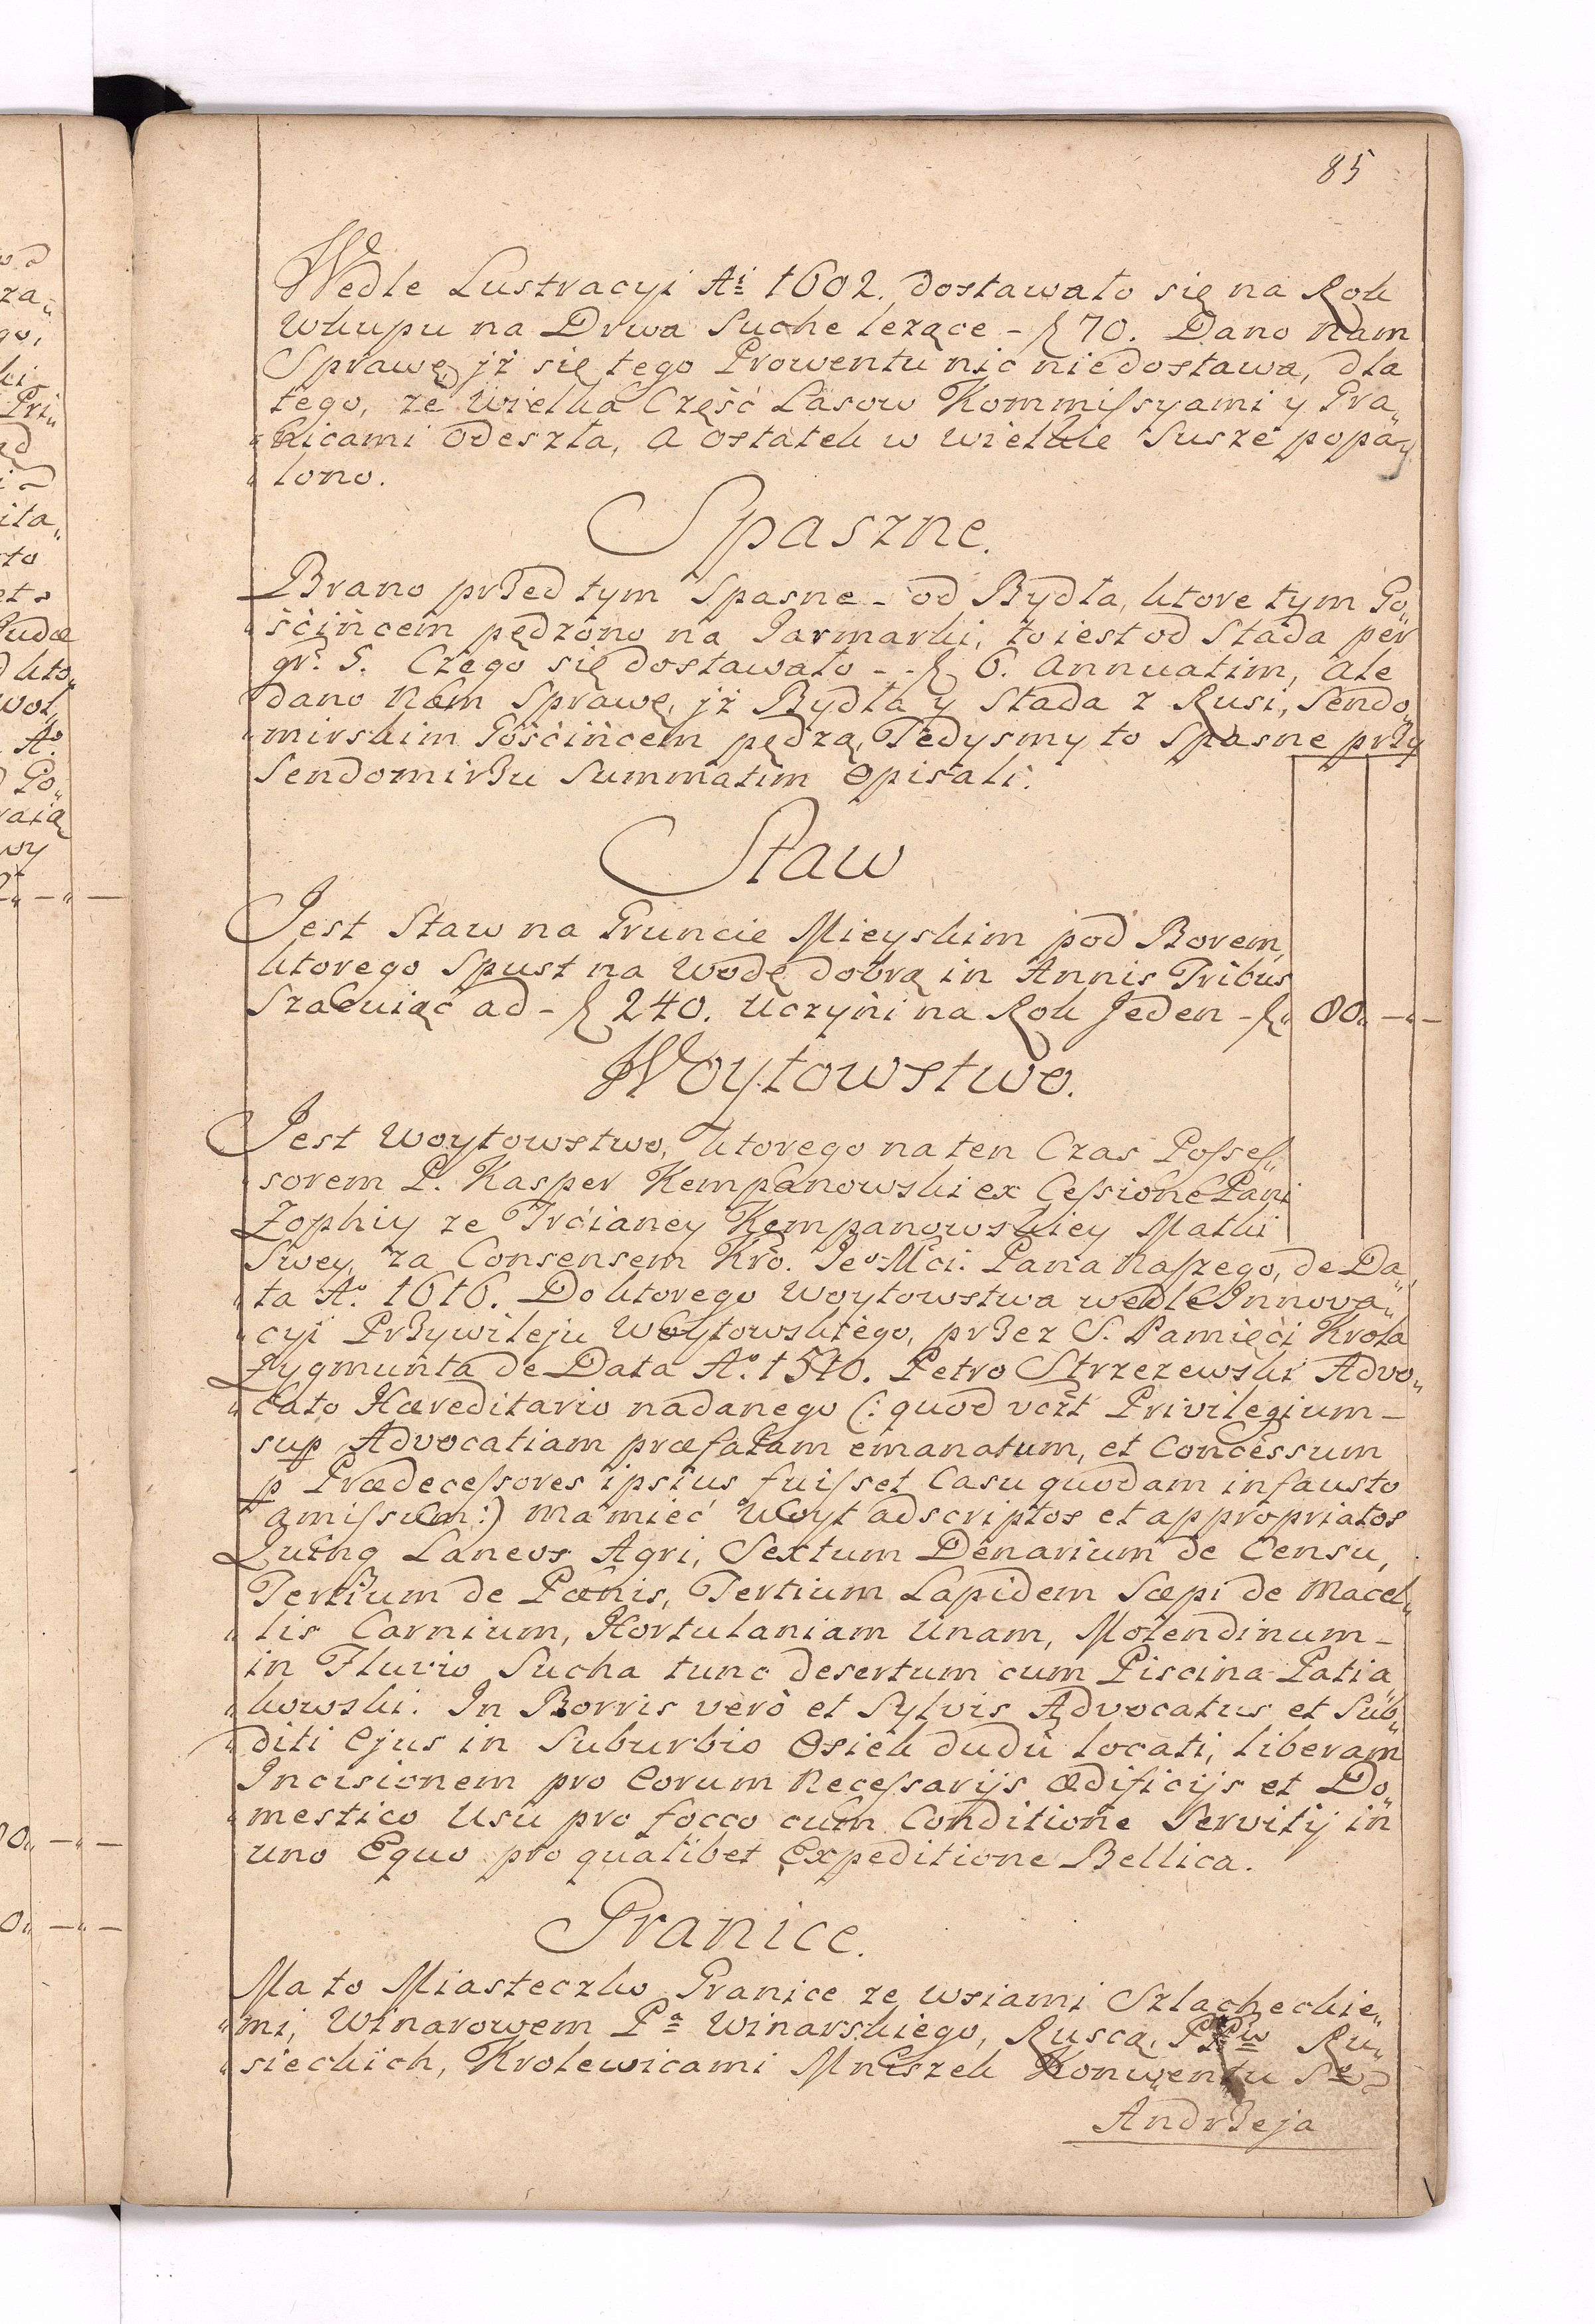 85
Wedle Lustracyi Aī 1602. dostawało się na Rok
Wkupu na Drwa Suche lezące - ƒ 70. Dano Nam
Sprawę, jż się tego Prowentu nic niedostawa, dla
tego, że Wielka Część Lasow Kommissyami y Gra„
„nicami odeszła, a ostatek w wielkie Susze popa„
„lono.
Spaszne.
Brano przed tym Spasne - od Bydła, ktore tym Go„
„ścińcem pędzono na Jarmarki, to iest od Stada per
gr. 5. Czego się dostawało - - ƒ 6. Annuatim, ale
dano Nam Sprawę, jż Bydła y Stada z Rusi, Sendo„
„mirskim Gościńcem pędzą, Tedysmy to Spasne przy
Sendomirzu Summatim Opisali.
Staw
Jest Staw na Gruncie Mieyskim pod Borem,
ktorego Spust na Wodę dobrą in Annis Tribus
Szacuiąc ad - ƒ 240. Uczyni na Rok Jeden - ƒ„ 80„ —„—
Woytowstwo.
Jest Woytowstwo, ktorego na ten Czas Posses„
„sorem P. Kasper Kempanowski ex Cessione Pani
Zophiy ze Trcianey Kempanowskiey Matki
Swey, za Consensem Kro. Jeo Mci: Pana Naszego, de Da„
„ta Ao. 1616. Do ktorego Woytowstwa wedle Innova„
„cyi Przywileju Woytowskiego, przez S. Pamięci Krola
Zygmunta de Data Ao. 1510. Petro Strzezewski Advo„
„cato Hæreditario nadanego (: quod vczt Privilegium —
sup Advocatiam præfatam emanatum, et Concessum
p Prædecessores ipsius fuisset Casu quodam infausto
amissum:) ma mieć Woyt adscriptos et appropriatos
Quinq Laneos Agri, Sextum Denarium de Censu,
Tertium de Pœnis, Tertium Lapidem Sæpi de Macel„
„lis Carnium, Hortulaniam Unam, Molendinum —
in Fluvio Sucha tunc desertum cum Piscina Patia„
„kowski. In Borris verò et Sylvis Advocatus et Sub„
„diti Ejus in Suburbio Osiek dudū locati, liberam
Incisionem pro Eorum Necessarijs ædificijs et Do„
„mestico Usu pro focco cum Conditione Servitij in
uno Equo pro qualibet Expeditione Bellica.
Granice.
Ma to Miasteczko Granice ze wsiami Szlacheckie„
„mi, Winarowem Pa Winarskiego, Ruscą, PPw Ru„
„sieckich, Krolewicami Mniszek Konwentu So
Andrzeja